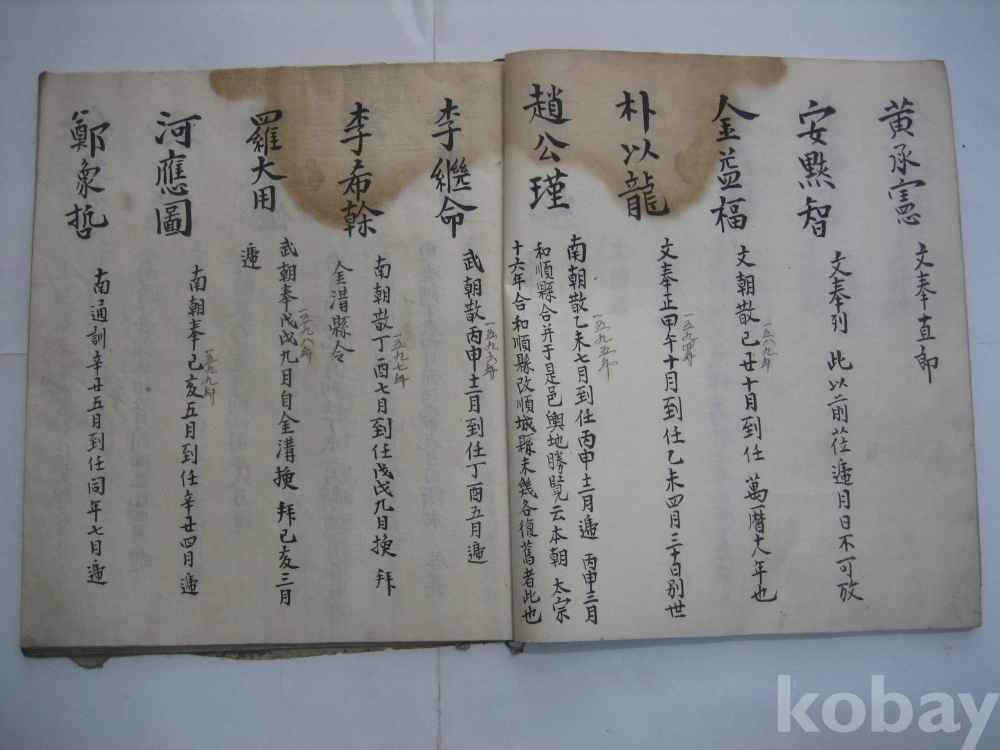 黄承憲 文奉直郎
安㸃智 文奉列 此以前莅遞月日不可攷
金益福 文朝散己丑十月到任 萬曆十八年也
一五八九年
朴以龍 文奉正甲午十月到任乙未四月三十日別世
一五九四年
趙公瑾 南朝散乙未七月到任丙申十二月遞 丙申三月
一五九五年
和順縣合并于是邑輿地勝覽云本朝 太宗
十六年合和順縣改順城縣未幾各復舊者此也
李繼命 武朝散丙申十二月到任丁酉五月遞
李希幹 南朝散丁酉七月到任戊戌九月換 拜
一五九七年
金溝縣令
羅大用 武朝奉戊戌九月自金溝換 拜己亥三月
一五九八年
遞
河應圖 南朝奉己亥五月到任辛丑四月遞
一五九九年
鄭象哲 南通訓辛丑五月到任同年七月遞
kobay